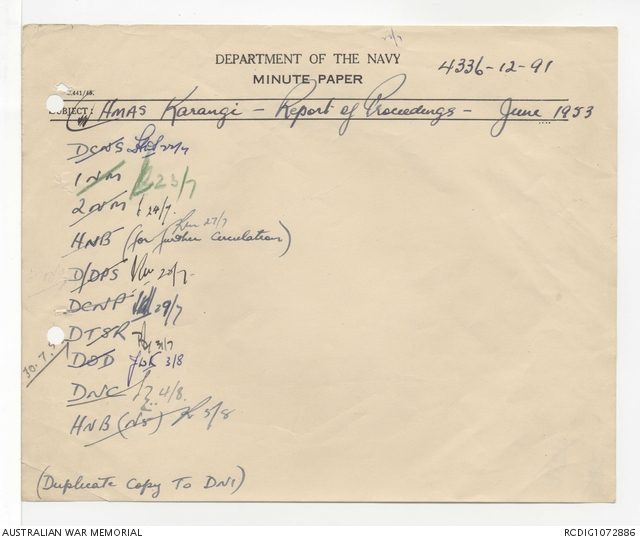 DEPARTMENT OF THE NAVY
4336-12-91
MINUTE PAPER
SUBJECT: HMAS Karangi - Report of Proceedings - June 1953
DCNS 22/7
1NM 23/7
2NM 24/7.
27/7
HNB (for further circulation)
D/DPS
DCNP 29/7
DTSR 31/7
30.7.5
DOD 3/8
DNC 4/8.
HNB (NS) 5/8
(Duplicate Copy To DNI)
AUSTRALIAN WAR MEMORIAL
RCDIG1072886